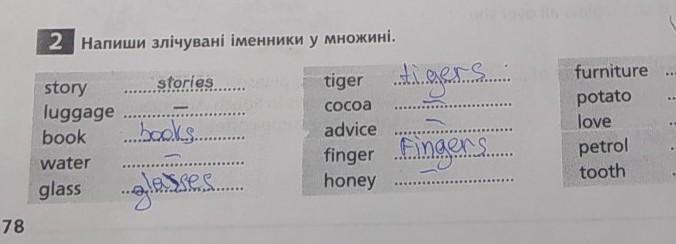 2 Напиши злічувані іменники у множині.
story ......stories......
luggage ......–......
book ......books......
water ......–......
glass ......glasses......
tiger ......tigers......
cocoa ......–......
advice ......–......
finger ......Fingers......
honey ......–......
furniture
potato
love
petrol
tooth
78